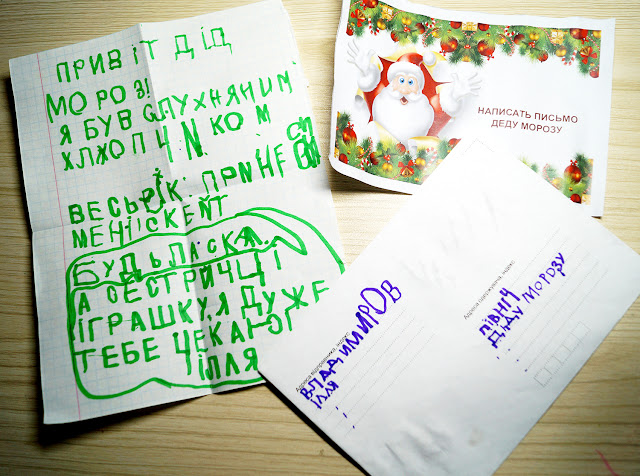 ПРИВІТ ДІД
МОРОЗ!
Я БУВ СЛУХНЯЧИМ
ХЛЖОПЧИКОМ
ВЕСЬ РІК. ПРИНЕСИ
МЕНІ СКЕЙТ
БУДЬЛАСКА.
А СЕСТРИЧЦІ
ІГРАШКУ. Я ДУЖЕ
ТЕБЕ ЧЕКАЮ!
ІЛЛЯ
НАПИСАТЬ ПИСЬМО
ДЕДУ МОРОЗУ
Адреса відправника, індекс
ВЛАДИМИРОВ
ІЛЛЯ
Адреса одержувача, індекс
ПІВНІЧ
ДІДУ МОРОЗУ